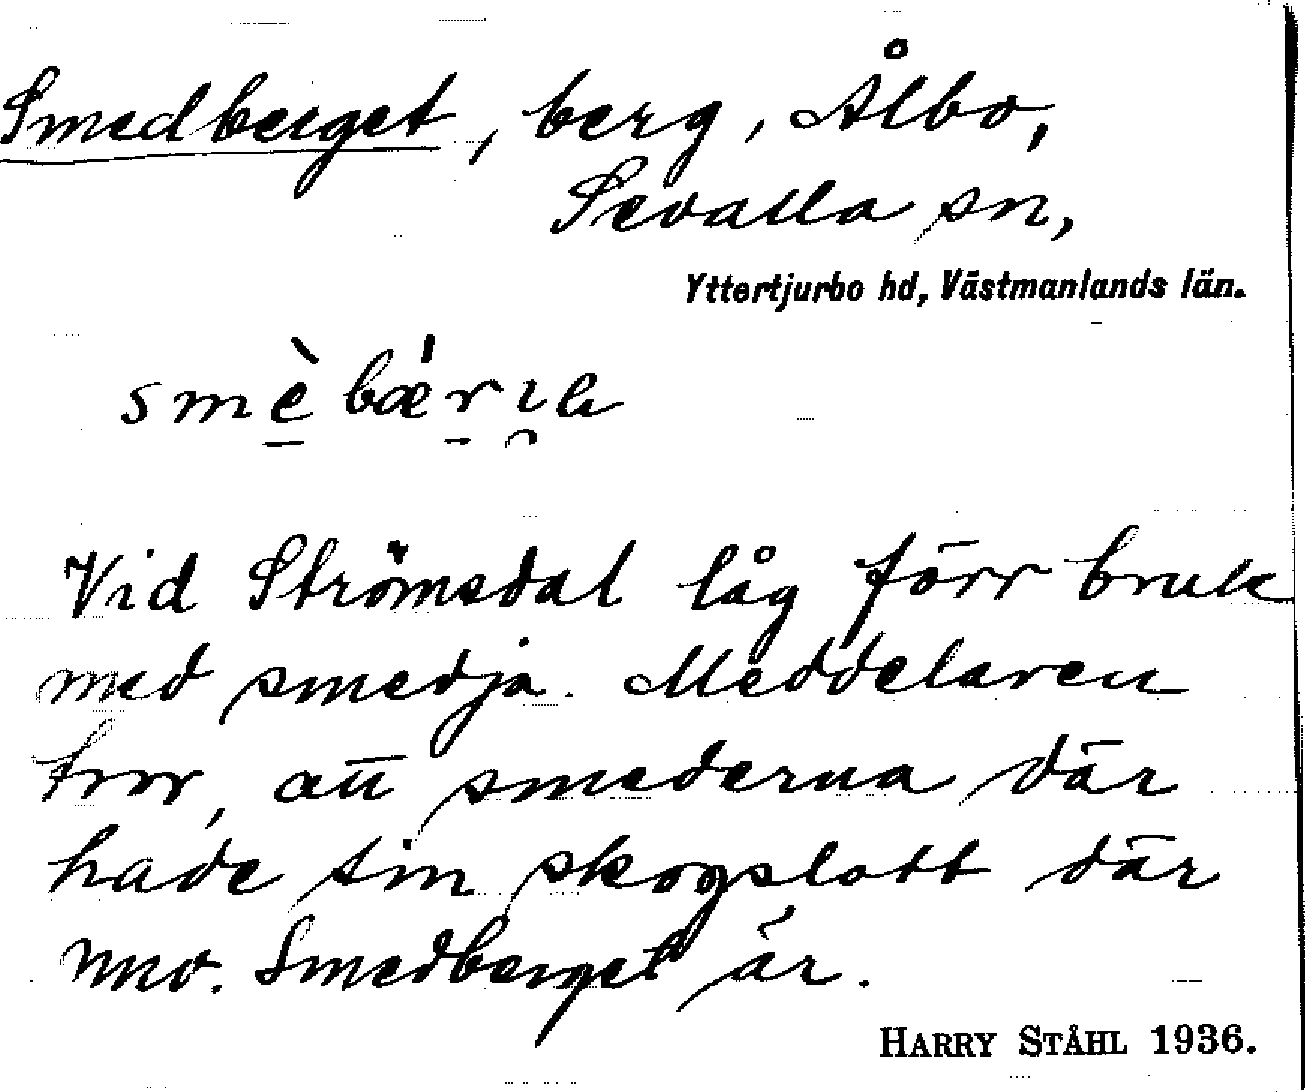 Smedberget, berg, Ålbo,
Sevalla sn,
Yttertjurbo hd, Västmanlands län.
Vid Strömsdal låg förr bruk
med smedja. Meddelaren
tror, att smederna där
hade sin skogslott där
nuv. Smedberget är.
HARRY STÅHL 1936.